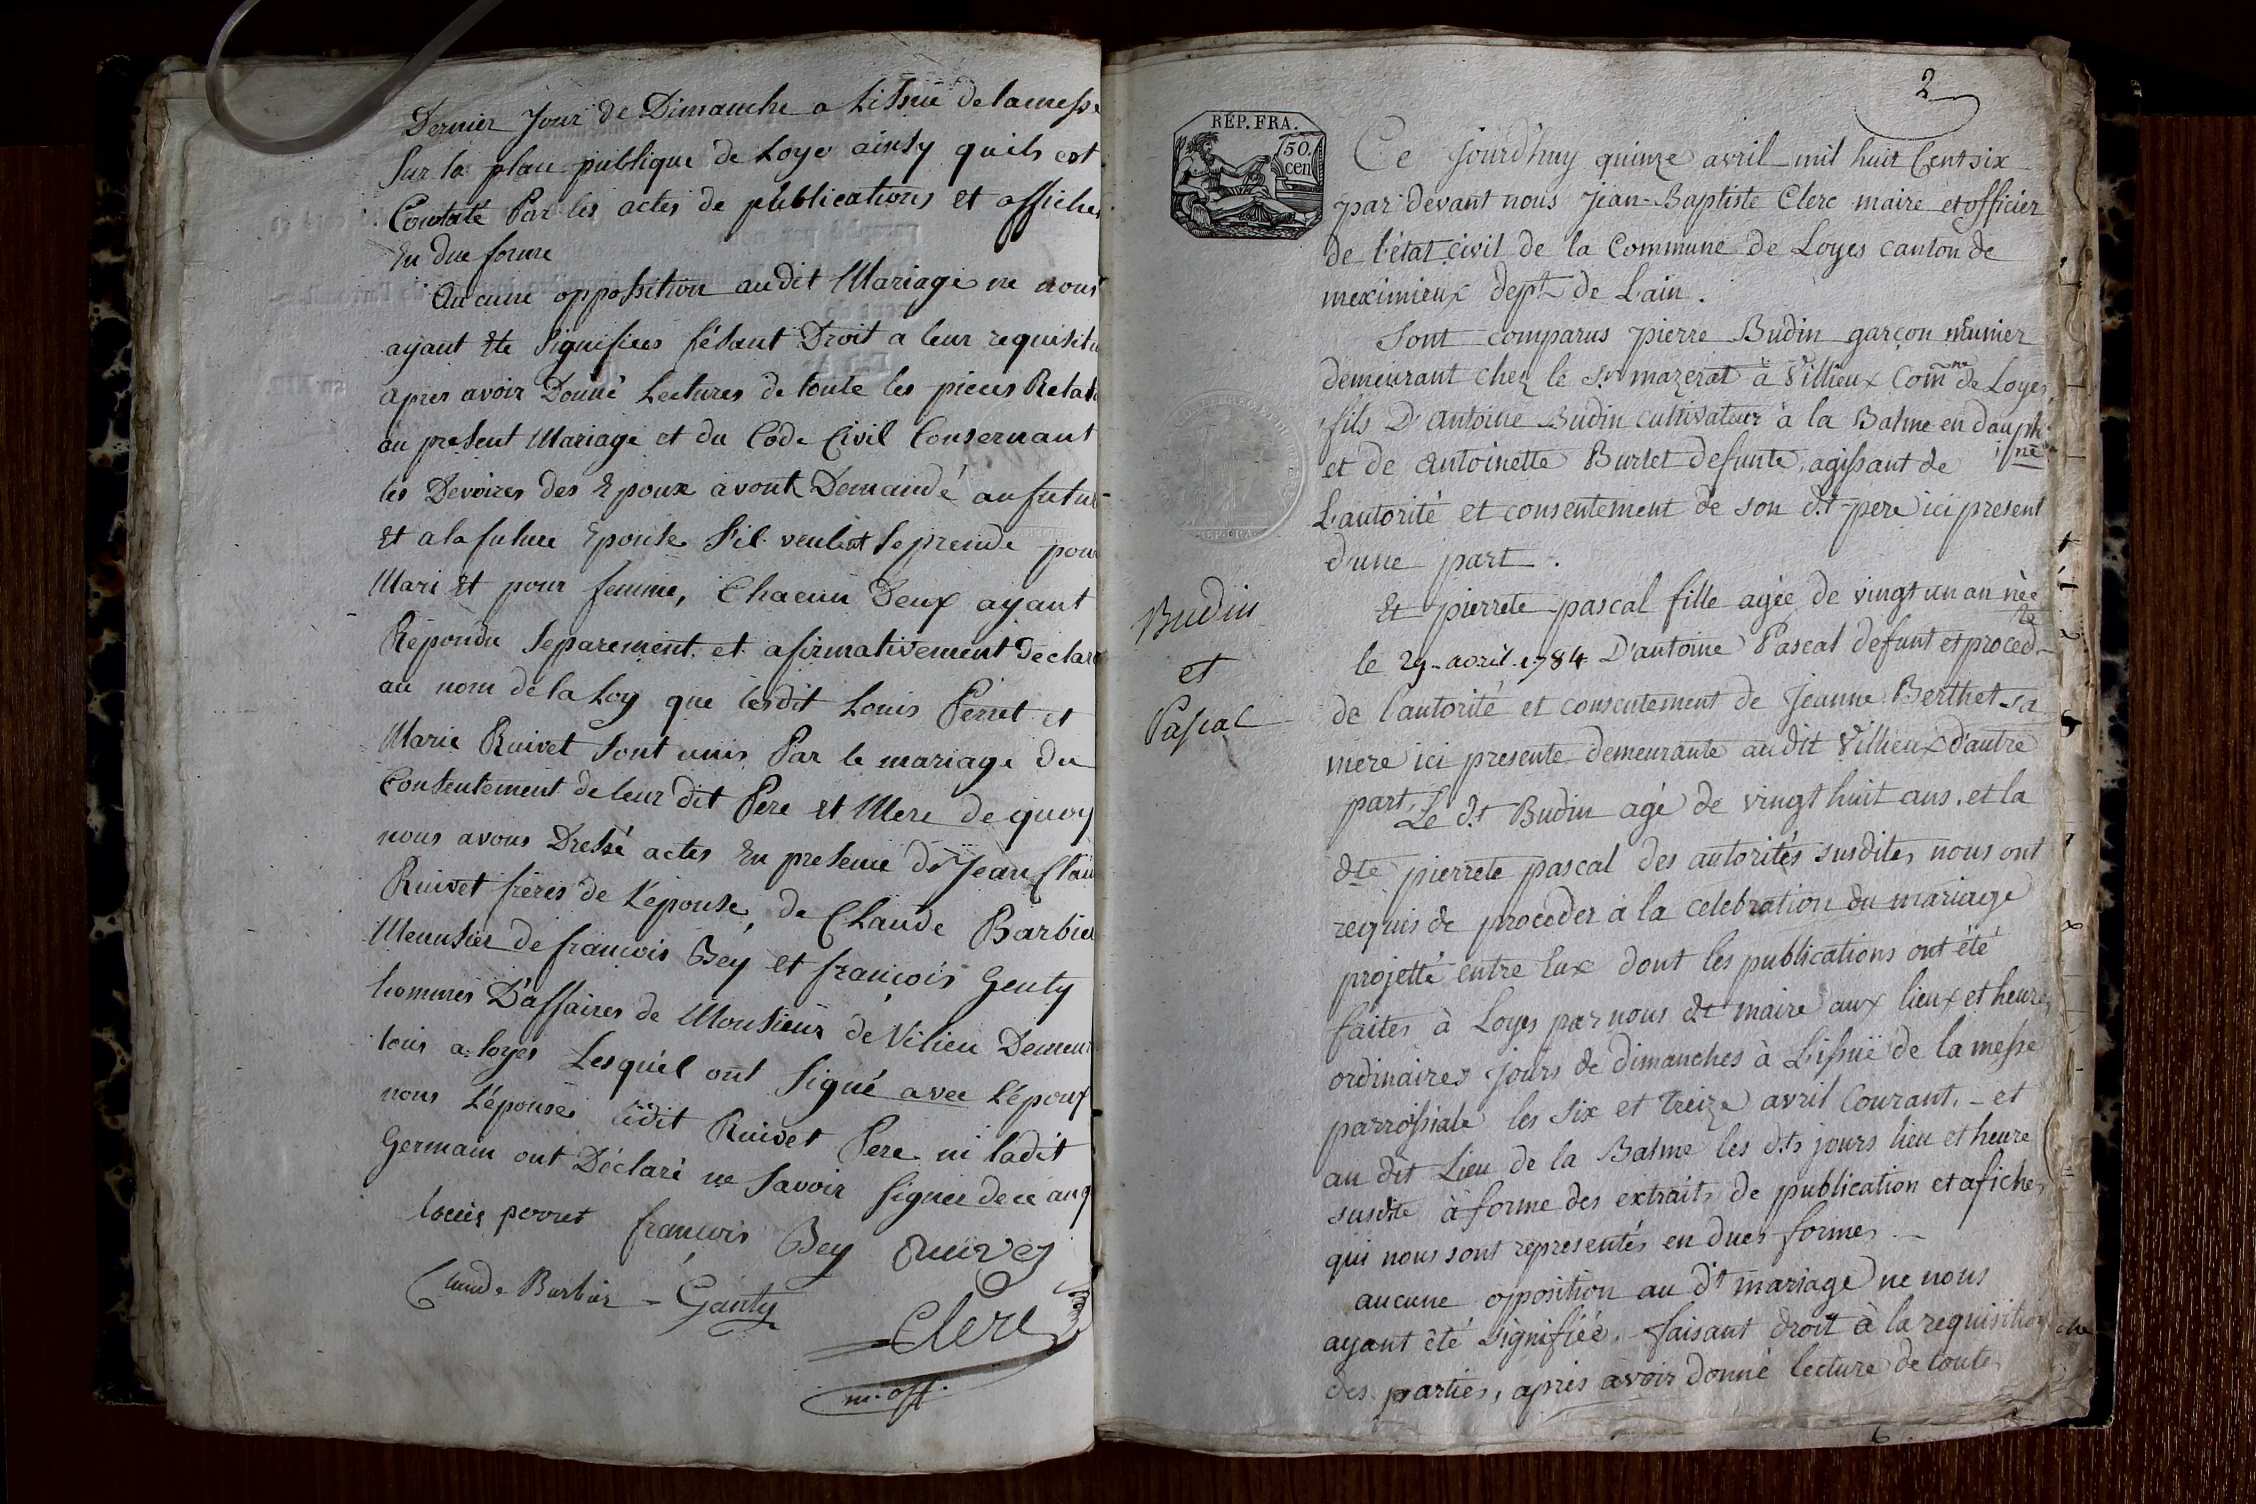 Dernier Jour de Dimanche a Lissuë de la messe
Sur la place publique de Loye ainsy quils est
Constaté Par les actes de publications et affiches
En due forme
Aucune oppossition audit Mariage ne nous
ayant Ete Signifiees fésant Droit a leur requisiti
apres avoir Donné Lectures de toute les pieces Relati
au present Mariage et du Code Civil Consernant
les Devoires des Epoux avont Demandé au futur
Et a la future Epouse S'il veulent se prende pour
Mari Et pour femme, Chacun Deux ayant
Répondu Separement et afirmativement declare
au nom de la Loy que lesdit Louis Perret et
Marie Ruivet Sont unis Par le mariage du
Consentement de leur dit Pere et Mere de quoy
nous avons Dressé actes En presence de Jean Clau
Ruivet frères de L'épouse, de Claude Barbier
Menusier de francois Bey et francois Genty
hommes D'affaires de Monsieur de Vilieu Demeur
tous a loyes Lesquel ont Signé avec L'époux
nous L'épouse ledit Ruivet Pere ni ladit
Germain ont Déclaré ne Savoir Signer de ce
louis perret francois Bey Ruivet
Claude Barbier Genty
Clerc
m. off.
2
RÉP. FRA.
50.
cen
Ce jourd'huy quinze avril mil huit Cent six
par devant nous Jean-Baptiste Clerc maire et officier
de l'état civil de la Commune de Loyes canton de
meximieux dept de L'ain.
Sont comparus pierre Budin garçon munier
demeurant chez le Sr mazerat à Villieux Comne de Loyes,
fils D'antoine Budin cultivateur à la Balme en dauphi
né
et de antoinette Burlet defunte, agissant de
L'autorité et consentement de son d.t pere ici present
d'une part.
Et pierrete pascal fille agée de vingt un an née
le 29 avril 1784 D'antoine Pascal defunt et proced
te
de l'autorité et consentement de Jeanne Berthet sa
mere ici presente demeurante au dit Villieux d'autre
part, Le d.t Budin agé de vingt huit ans, et la
dte pierrete pascal des autorités susdites nous ont
requis de proceder à la celebration du mariage
projetté entre Eux dont les publications ont été
faites à Loyes par nous dt maire aux lieux et heures
ordinaires jours de dimanches à L'issuë de la messe
parroissiale les Six et treize avril Courant, - et
au dit Lieu de la Balme les d.ts jours lieu et heure
susdite à forme des extraits de publication et afiches
qui nous sont representés en dues formes
Budin
et
Pascal
aucune opposition au dt mariage ne nous
ayant été signifiée, faisant droit à la requisition
des parties, après avoir donné lecture de toutes